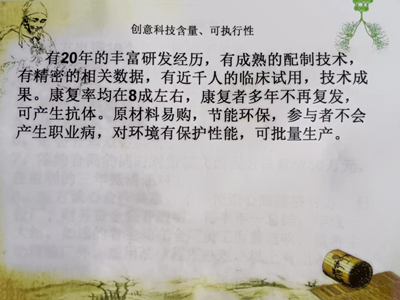 创意科技含量、可执行性
有20年的丰富研发经历，有成熟的配制技术，
有精密的相关数据，有近千人的临床试用，技术成
果。康复率均在8成左右，康复者多年不再复发，
可产生抗体。原材料易购，节能环保，参与者不会
产生职业病，对环境有保护性能，可批量生产。